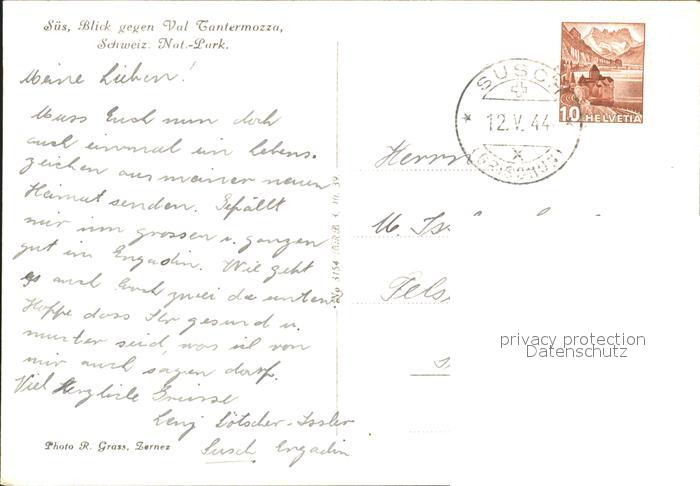 Süs, Blick gegen Val Tantermozza,
Schweiz. Nat.-Park.
Meine Lieben!
Muss Euch nun doch
auch einmal ein Lebens-
zeichen aus meiner neuen
Heimat senden. Gefällt
mir im grossen u. ganzen
gut im Engadin. Wie geht
es auch Euch zwei da unten
Hoffe dass Ihr gesund u.
munter seid, was ich von
mir auch sagen darf.
Viel Herzliche Grüsse
Lötscher-Issler
Susch Engadin
Photo R. Grass, Zernez
No 3154
SUSCH
12.V.44
(GRISCHUN)
10 HELVETIA
Herrn
privacy protection
Datenschutz